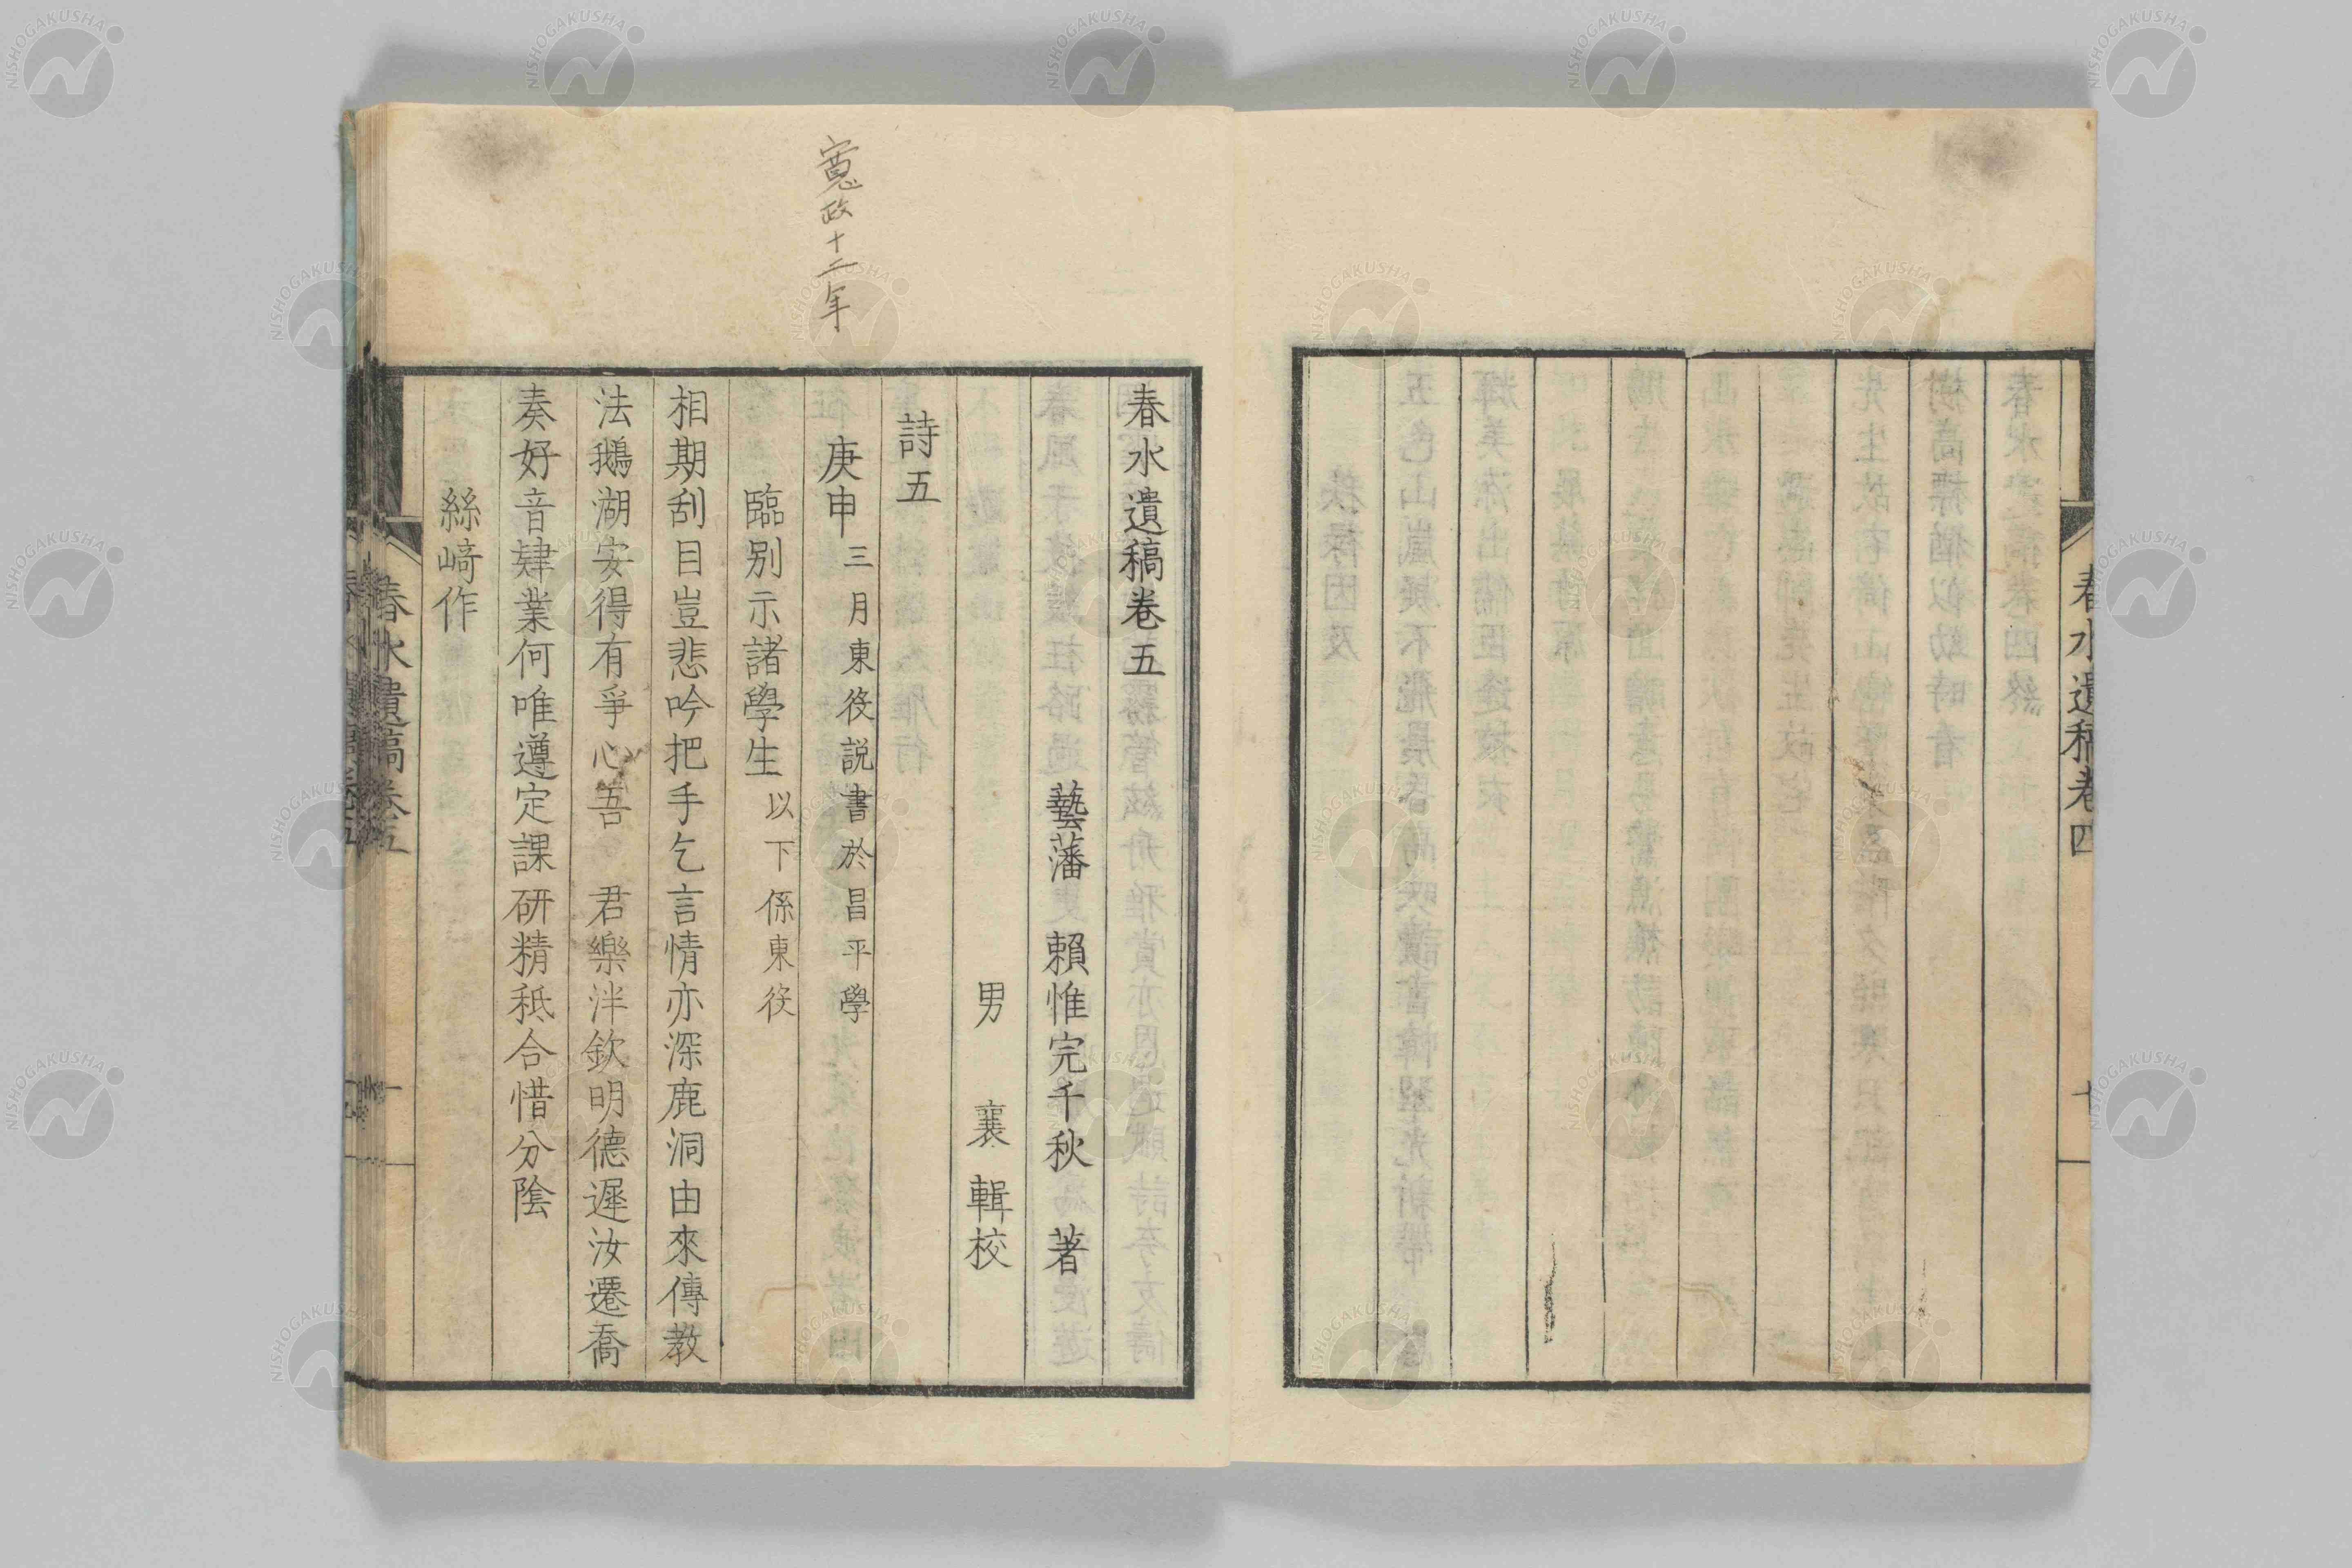 春水遺稿卷四
寛政十二年
春水遺稿卷五
藝藩 賴惟完千秋 著
男 襄 輯校
詩五
庚申三月東役説書於昌平學
臨別示諸學生以下係東役
相期刮目豈悲吟把手乞言情亦深鹿洞由來傳教
法鵝湖安得有爭心吾 君樂泮欽明德遲汝遷喬
奏好音肄業何唯遵定課研精秖合惜分陰
絲﨑作
春水遺稿卷五
NISHOGAKUSHA